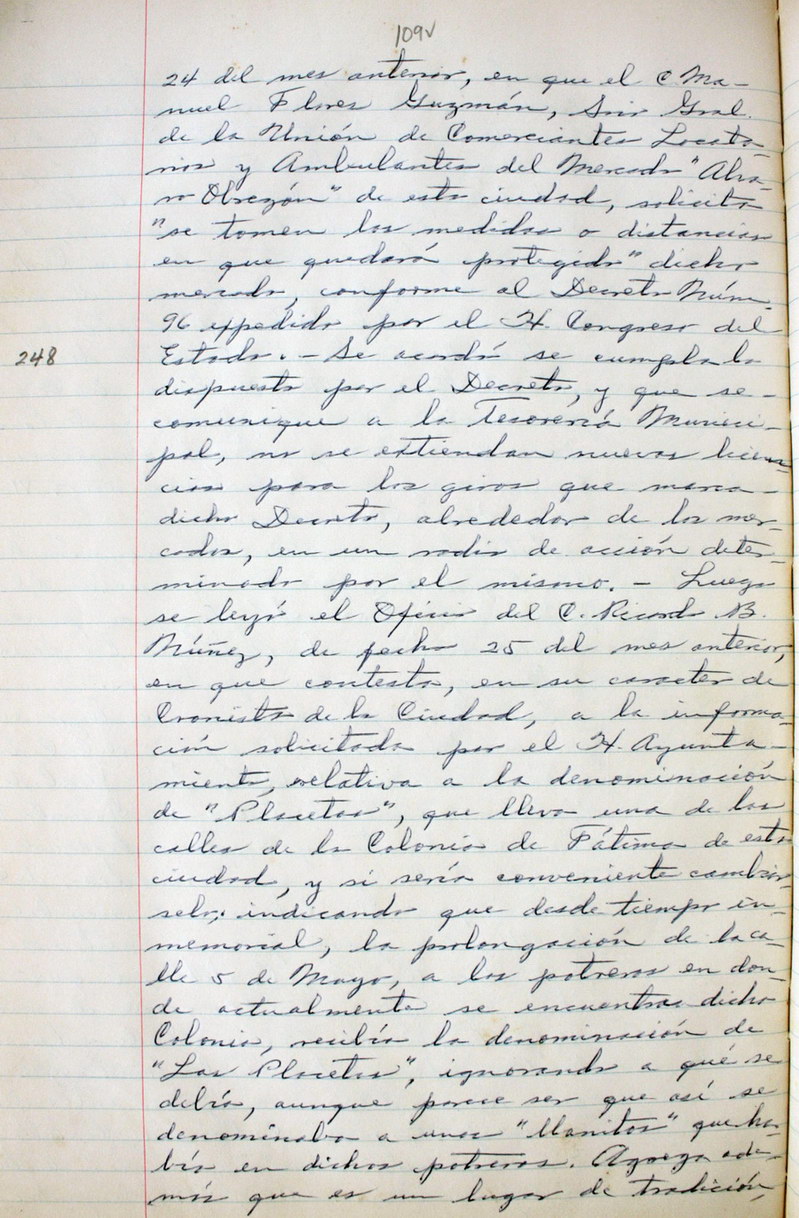 109v
24 del mes anterior, en que el C Ma-
nuel Flores Guzmán, Srio Gral.
de la Unión de Comerciantes Locata-
rios y Ambulantes del Mercado "Alva-
ro Obregón" de esta ciudad, solicita
"se tomen las medidas o distancias
en que quedará protegido" dicho
mercado, conforme al Decreto Núm.
96 expedido por el H. Congreso del
248 Estado. - Se acordó se cumpla lo
dispuesto por el Decreto, y que se-
comunique a la Tesorería Munici-
pal, no se extiendan nuevas licen-
cias para los giros que marca-
dicho Decreto, alrededor de los mer-
cados, en un radio de acción deter-
minado por el mismo. - Luego
se leyó el Oficio del C. Ricardo B.
Núñez, de fecha 25 del mes anterior,
en que contesta, en su caracter de
Cronista de la Ciudad, a la informa-
ción solicitada por el H. Ayunta-
miento, relativa a la denominación
de "Placetas", que lleva una de las
calles de la Colonia de Fátima de esta
ciudad, y si sería conveniente cambiár-
selo; indicando que desde tiempo in-
memorial, la prolongación de la ca-
lle 5 de Mayo, a los potreros en don-
de actualmente se encuentra dicha
Colonia, recibía la denominación de
"Las Placetas", ignorando a qué se
debía, aunque parece ser que así se
denominaba a unos "llanitos" que ha-
bía en dichos potreros. Agrega ade-
más que es un lugar de tradición,